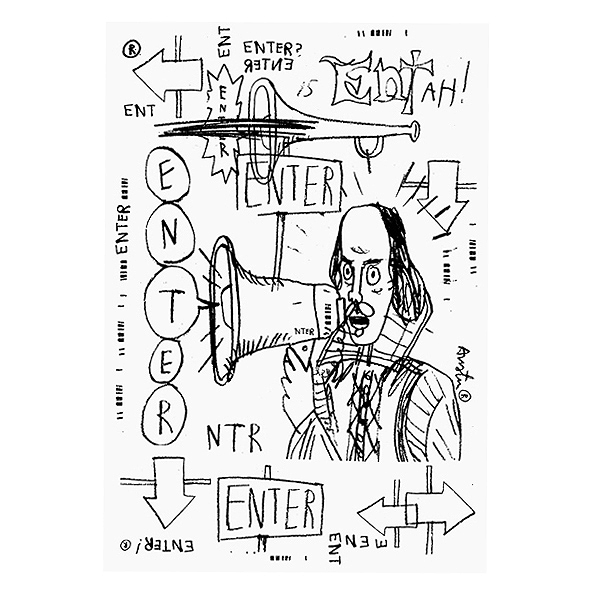 ®
ENT
ENTER?
ENTER
IS
ENTAH!
ENT
ENTER
ENTER
ENTER
ENTER
NTER
NTR
ENTER
ENTER!
®
ENT
ENE
®